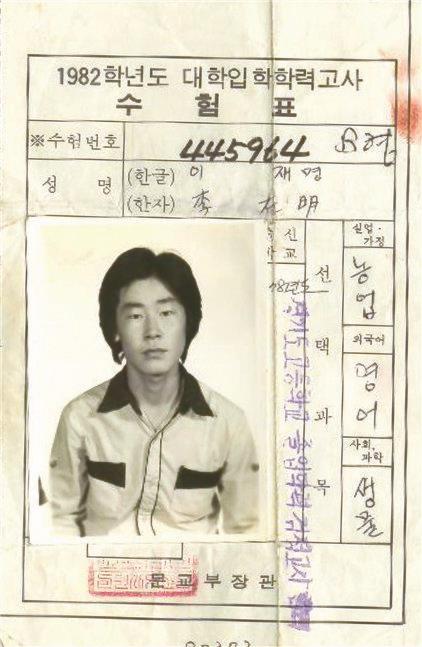 1982학년도 대학입학학력고사
수 험 표
※수험번호 445964
성 명 (한글) 이 재 명
(한자) 李 在 明
신
교
82년도
선 택 과 목
실업·가정
농업
외국어
영어
사회,과학
생물
경기도 고등학교 졸업학력 검정고시
문교부장관